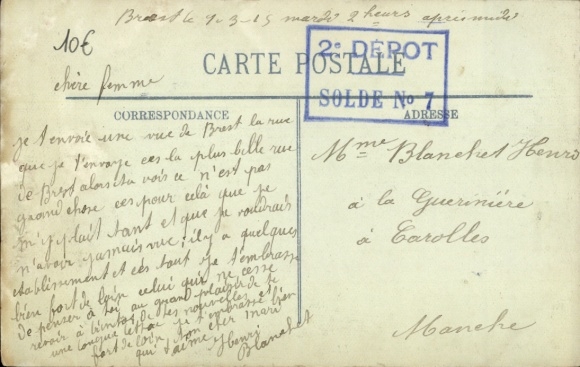 Brest le 9-3-15 mardi 2 heurs apris midi
10€
CARTE POSTALE
2e DÉPOT
SOLDE No 7
chère femme
CORRESPONDANCE
ADRESSE
je t'envoie une vue de Brest la rue
que je t'envoye ces la plus bille rue
de Brest alors tu vois ce n'est pas
grand chose ces pour celà que je
m'y plait tant et que je voudrais
n'avoir jamais vue; il y a quelques
etablissement et cés tout je t'embrasse
bien fort de loin celui qui ne cesse
de penser à toi au grand plaisir de te
revoir à bientot de tes nouvelles et
une longue lettre je t'embrasse bien
fort de loin ton cher mari
qui t'aime Henri
Blanchet
Mme Blanchet Henri
à la Guerinière
à Carolles
Manche